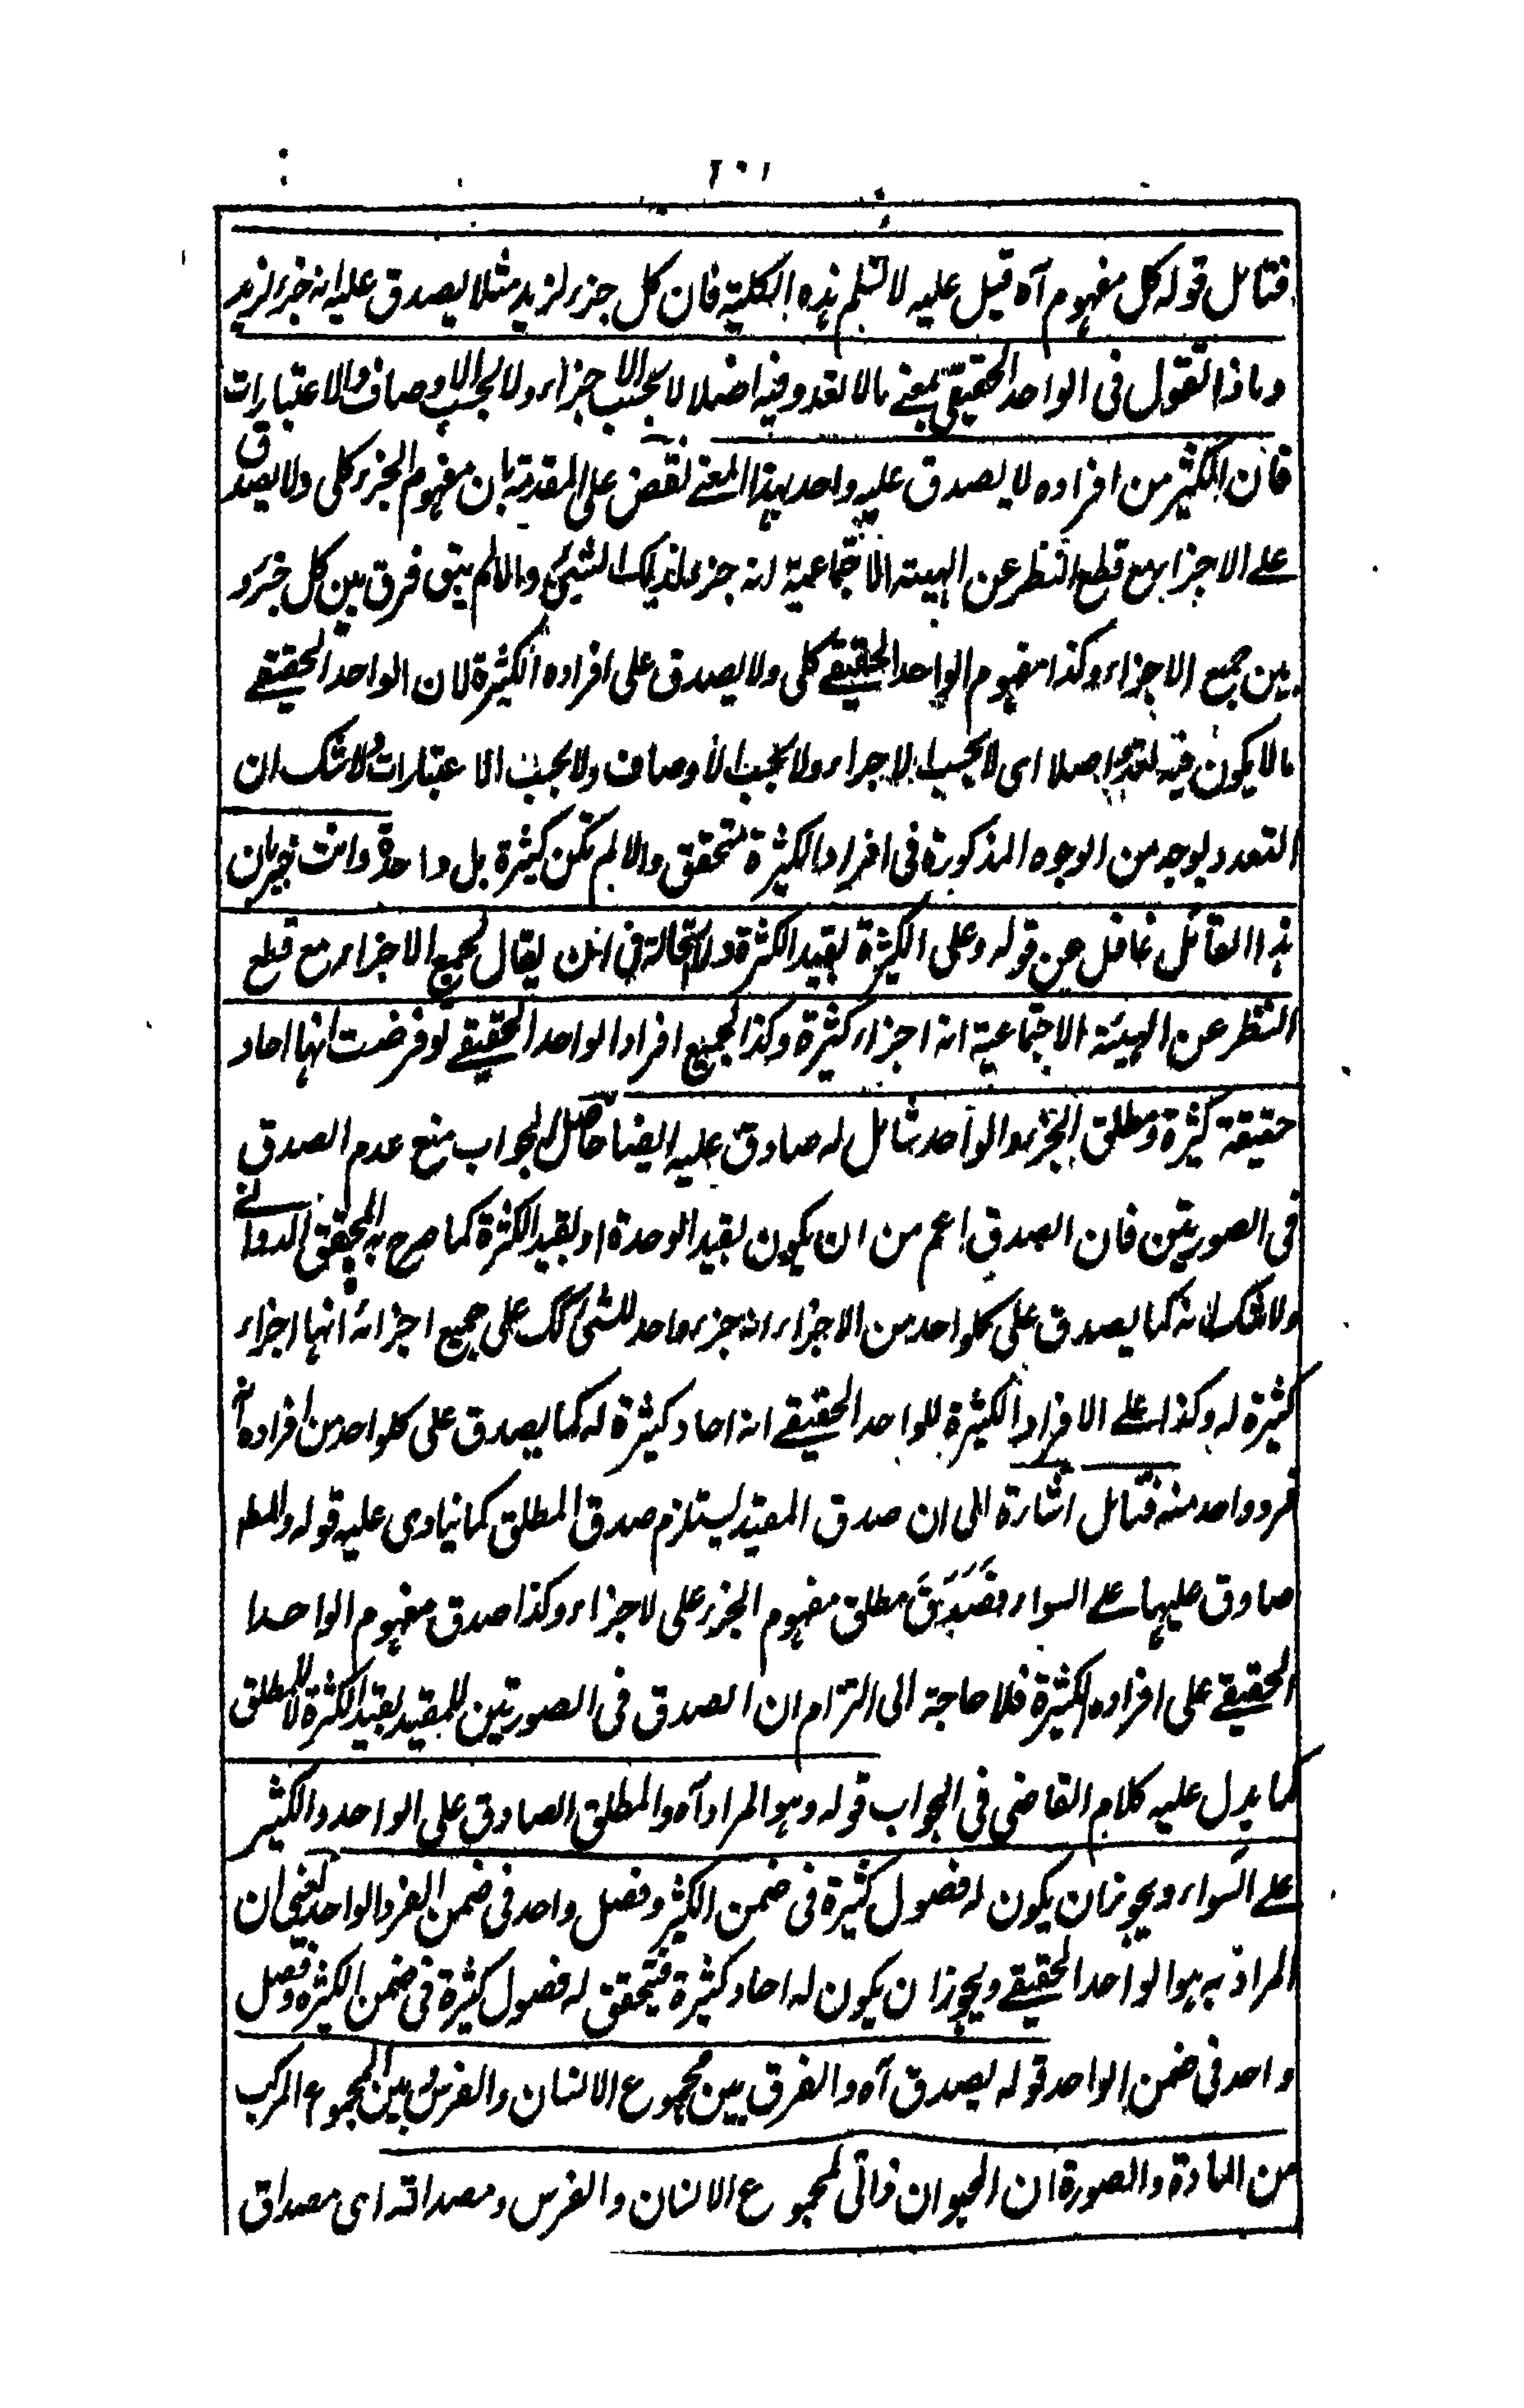 ٢٠١
فتامل قوله كل مفهوم آه قيل عليه لا نسلم هذه الكلية فان كل جزء لزيد مثلا يصدق عليه انه جزء لزيد
وماذا تقول فى الواحد الحقيقى بمعنے مالا تعدد فيه اصلا لا بحسب الاجزاء ولا بحسب الاوصاف والاعتبارات
فان الكثير من افراده لا يصدق عليه واحد بهذا المعنے نقض على المقدمة بان مفهوم الجزء كلى ولا يصدق
علے الاجزاء مع قطع النظر عن الهيئة الاجتماعية انه جزء لذلك الشيئ والا لم يبق فرق بين كل جزء و
بين جميع الاجزاء وكذا مفهوم الواحد الحقيقے كلى ولا يصدق على افراده الكثيرة لان الواحد الحقيقے
مالا يكون فيه تعدد اصلا اى لا بحسب الاجزاء ولا بحسب الاوصاف ولا بحسب الاعتبارات ولا شك ان
التعدد بوجه من الوجوه المذكورة فى افراد الكثيرة متحقق والا لم تكن كثيرة بل واحدة وانت خبير بان
هذا القائل غافل عن قوله وعلى الكثيرة بقيد الكثرة ولا استحالة فى ان يقال لجميع الاجزاء مع قطع
النظر عن الهيئة الاجتماعية انه اجزاء كثيرة وكذا لجميع افراد الواحد الحقيقے لو فرضت انها احاد
حقيقة كثيرة ومطلق الجزء والواحد شامل له صادق عليه ايضا حاصل الجواب منع عدم الصدق
فى الصورتين فان الصدق اعم من ان يكون بقيد الوحدة او بقيد الكثرة كما صرح به المحقق الدوانے
ولا شك انه كما يصدق على كلواحد من الاجزاء انه جزء واحد للشئ كك على جميع اجزائه انها اجزاء
كثيرة له وكذا علے الافراد الكثيرة للواحد الحقيقے انه احاد كثيرة له كما يصدق على كلواحد من افراده انه
فرد واحد منه فتامل اشارة الى ان صدق المقيد يستلزم صدق المطلق كما ينادى عليه قوله والمط
صادق عليها علے السواء فصَدَقَ مطلق مفهوم الجزء على لاجزاء وكذا صدق مفهوم الواحدا
الحقيقے على افراده الكثيرة فلا حاجة الى التزام ان الصدق فى الصورتين للمقيد بقيد الكثرة لا للمطلق
كما يدل عليه كلام القاضى فى الجواب قوله وهو المراد آه والمطلق الصادق على الواحد والكثير
علے السواء ويجوز ان يكون له فصول كثيرة فى ضمن الكثير وفصل واحد فى ضمن الفرد الواحد يعنى ان
المراد به هو الواحد الحقيقے ويجوز ان يكون له احاد كثيرة فيتحقق له فصول كثيرة فى ضمن الكثيرة وفصل
واحد فى ضمن الواحد قوله يصدق آه والفرق بين مجموع الانسان والفرس وبين المجموع المركب
من المادة والصورة ان الحيوان ذاتى لمجموع الانسان والفرس ومصداقه اى مصداق